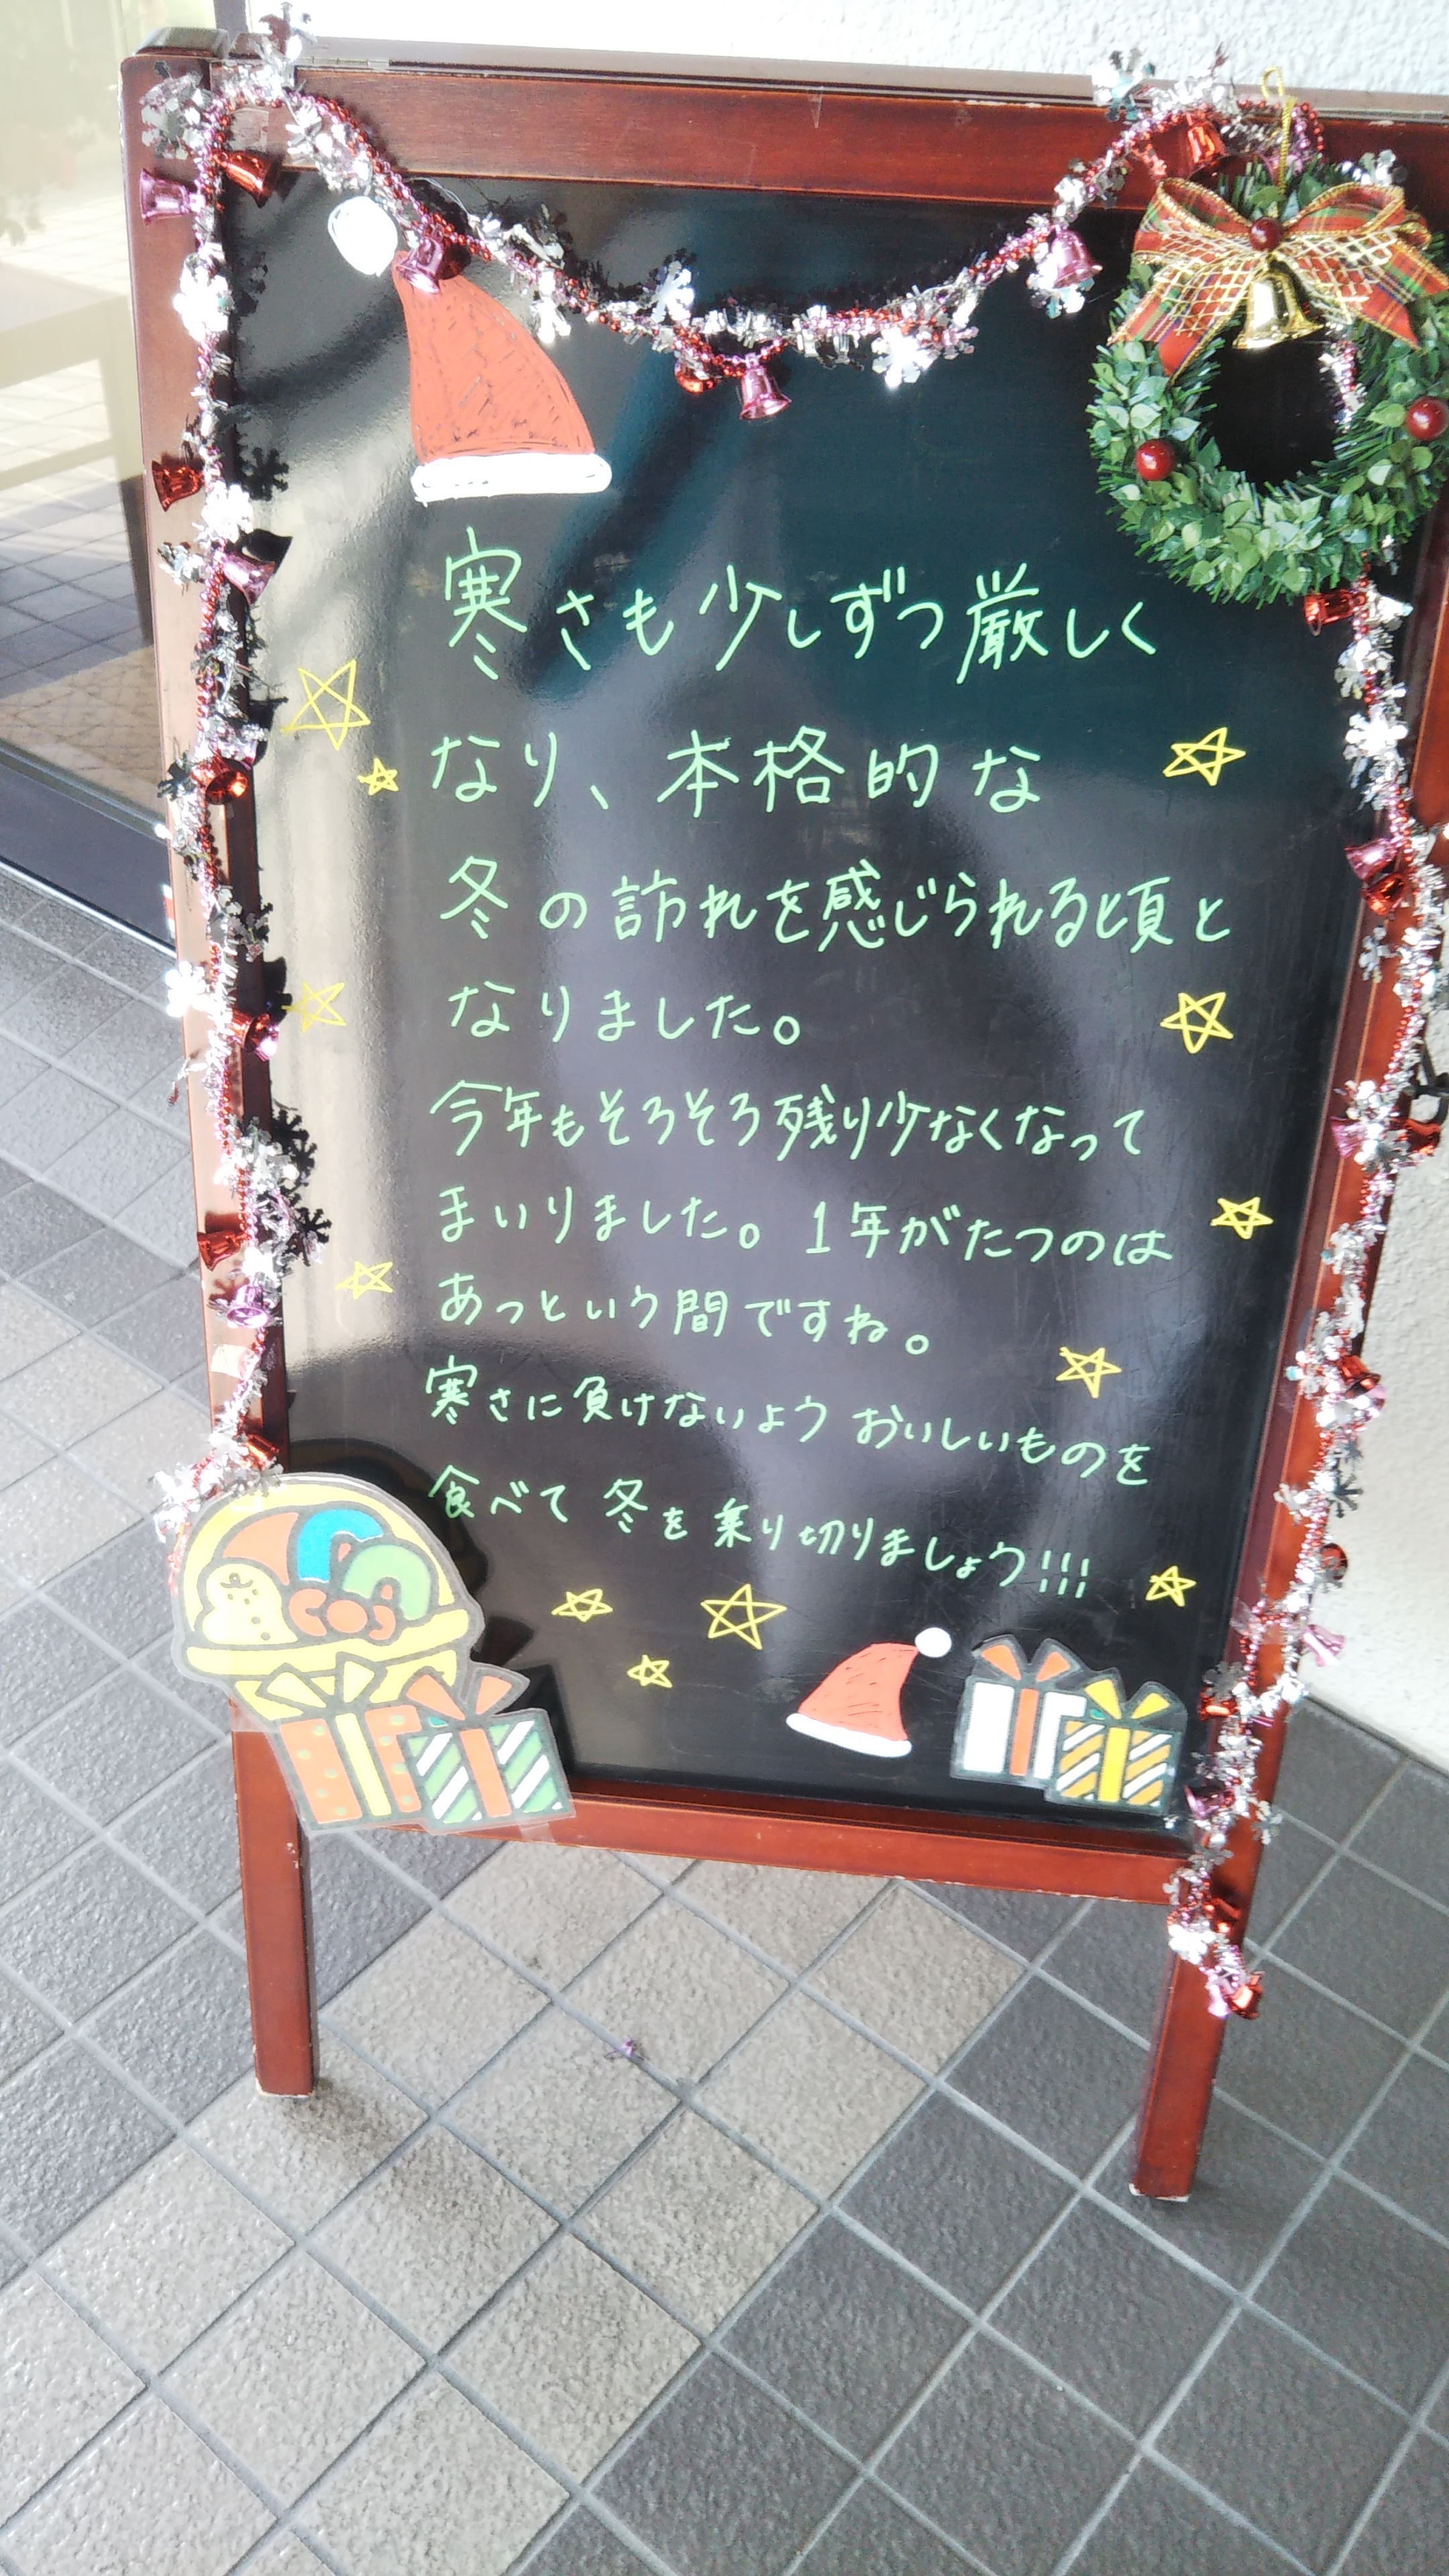 寒さも少しずつ厳しく
なり、本格的な
冬の訪れを感じられる頃と
なりました。
今年もそろそろ残り少なくなって
まいりました。1年がたつのは
あっという間ですね。
寒さに負けないよう おいしいものを
食べて 冬を乗り切りましょう!!!